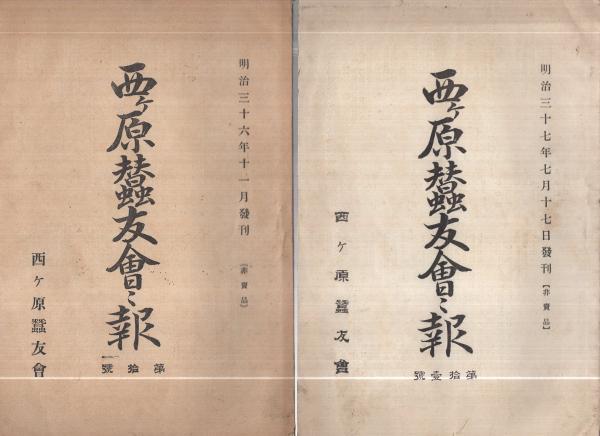 明治三十六年十一月發刊
(非賣品)
西ヶ原蠶友會々報
第拾號
西ヶ原蠶友會
明治三十七年七月十七日發刊
【非賣品】
西ヶ原蠶友會々報
第拾壹號
西ヶ原蠶友會